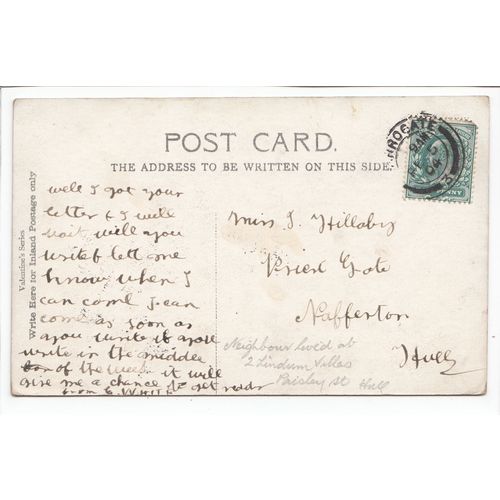 POST CARD.
THE ADDRESS TO BE WRITTEN ON THIS SIDE.
Valentine's Series
Write Here for Inland Postage only
well I got your
letter & I will
wait will you
write & let me
know when I
can come I can
come as soon as
you write if you
write in the middle
of the week it will
give me a chance to get ready
from C. WHITE
Miss I. Hillaby
Priest Gate
Nafferton
Hull
Neighbour lived at
2 Lindum Villas
Paisley St Hull